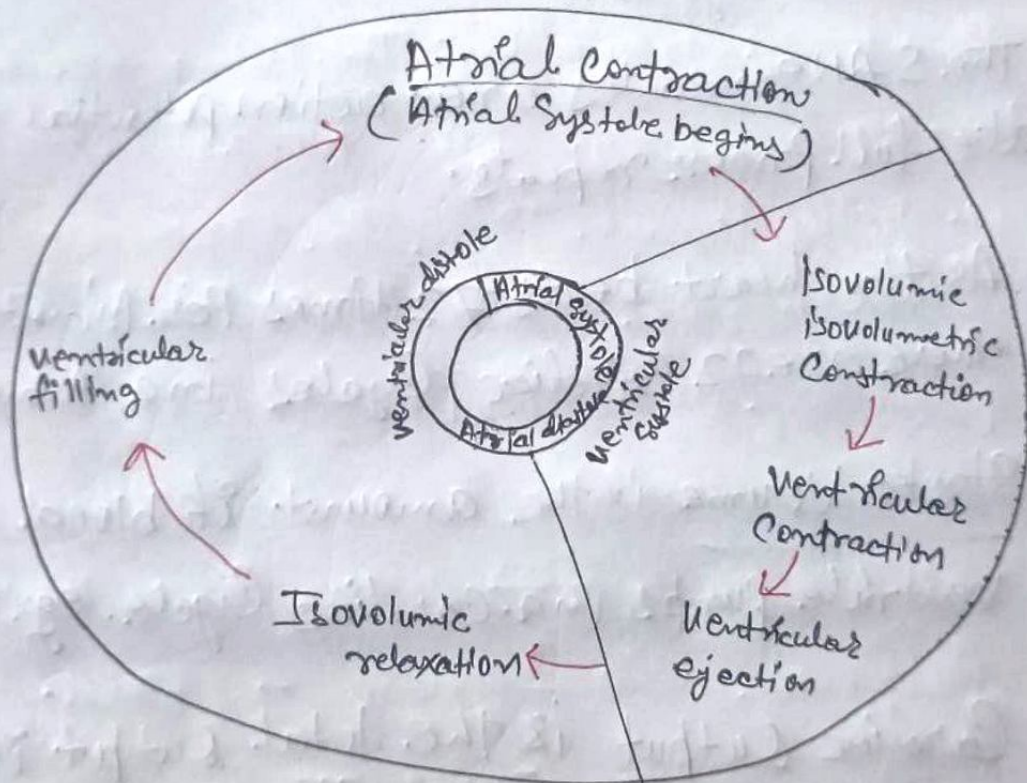 Atrial Contraction
(Atrial Systole begins)
Isovolumic
isovolumetric
Constraction
Ventricular
Contraction
Ventricular
ejection
Isovolumic
relaxation
Ventricular
filling
Ventricular distole
Atrial systole
Ventricular
systole
Atrial distole